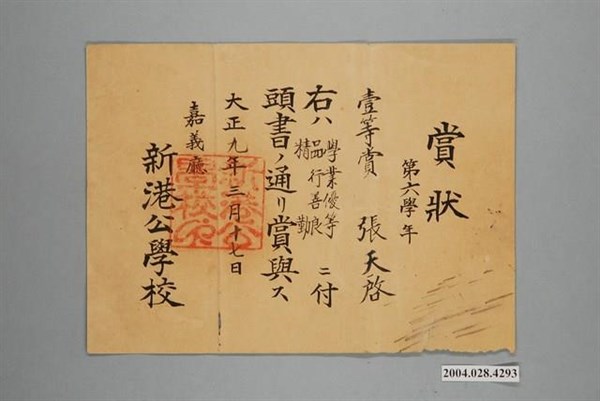 賞狀
第六學年
壹等賞 張天啓
右ハ學業優等
品行善良
精勤
ニ付
頭書ノ通リ賞與ス
大正九年三月十七日
嘉義廳
新港公學校
新港公學校印
2004.028.4293